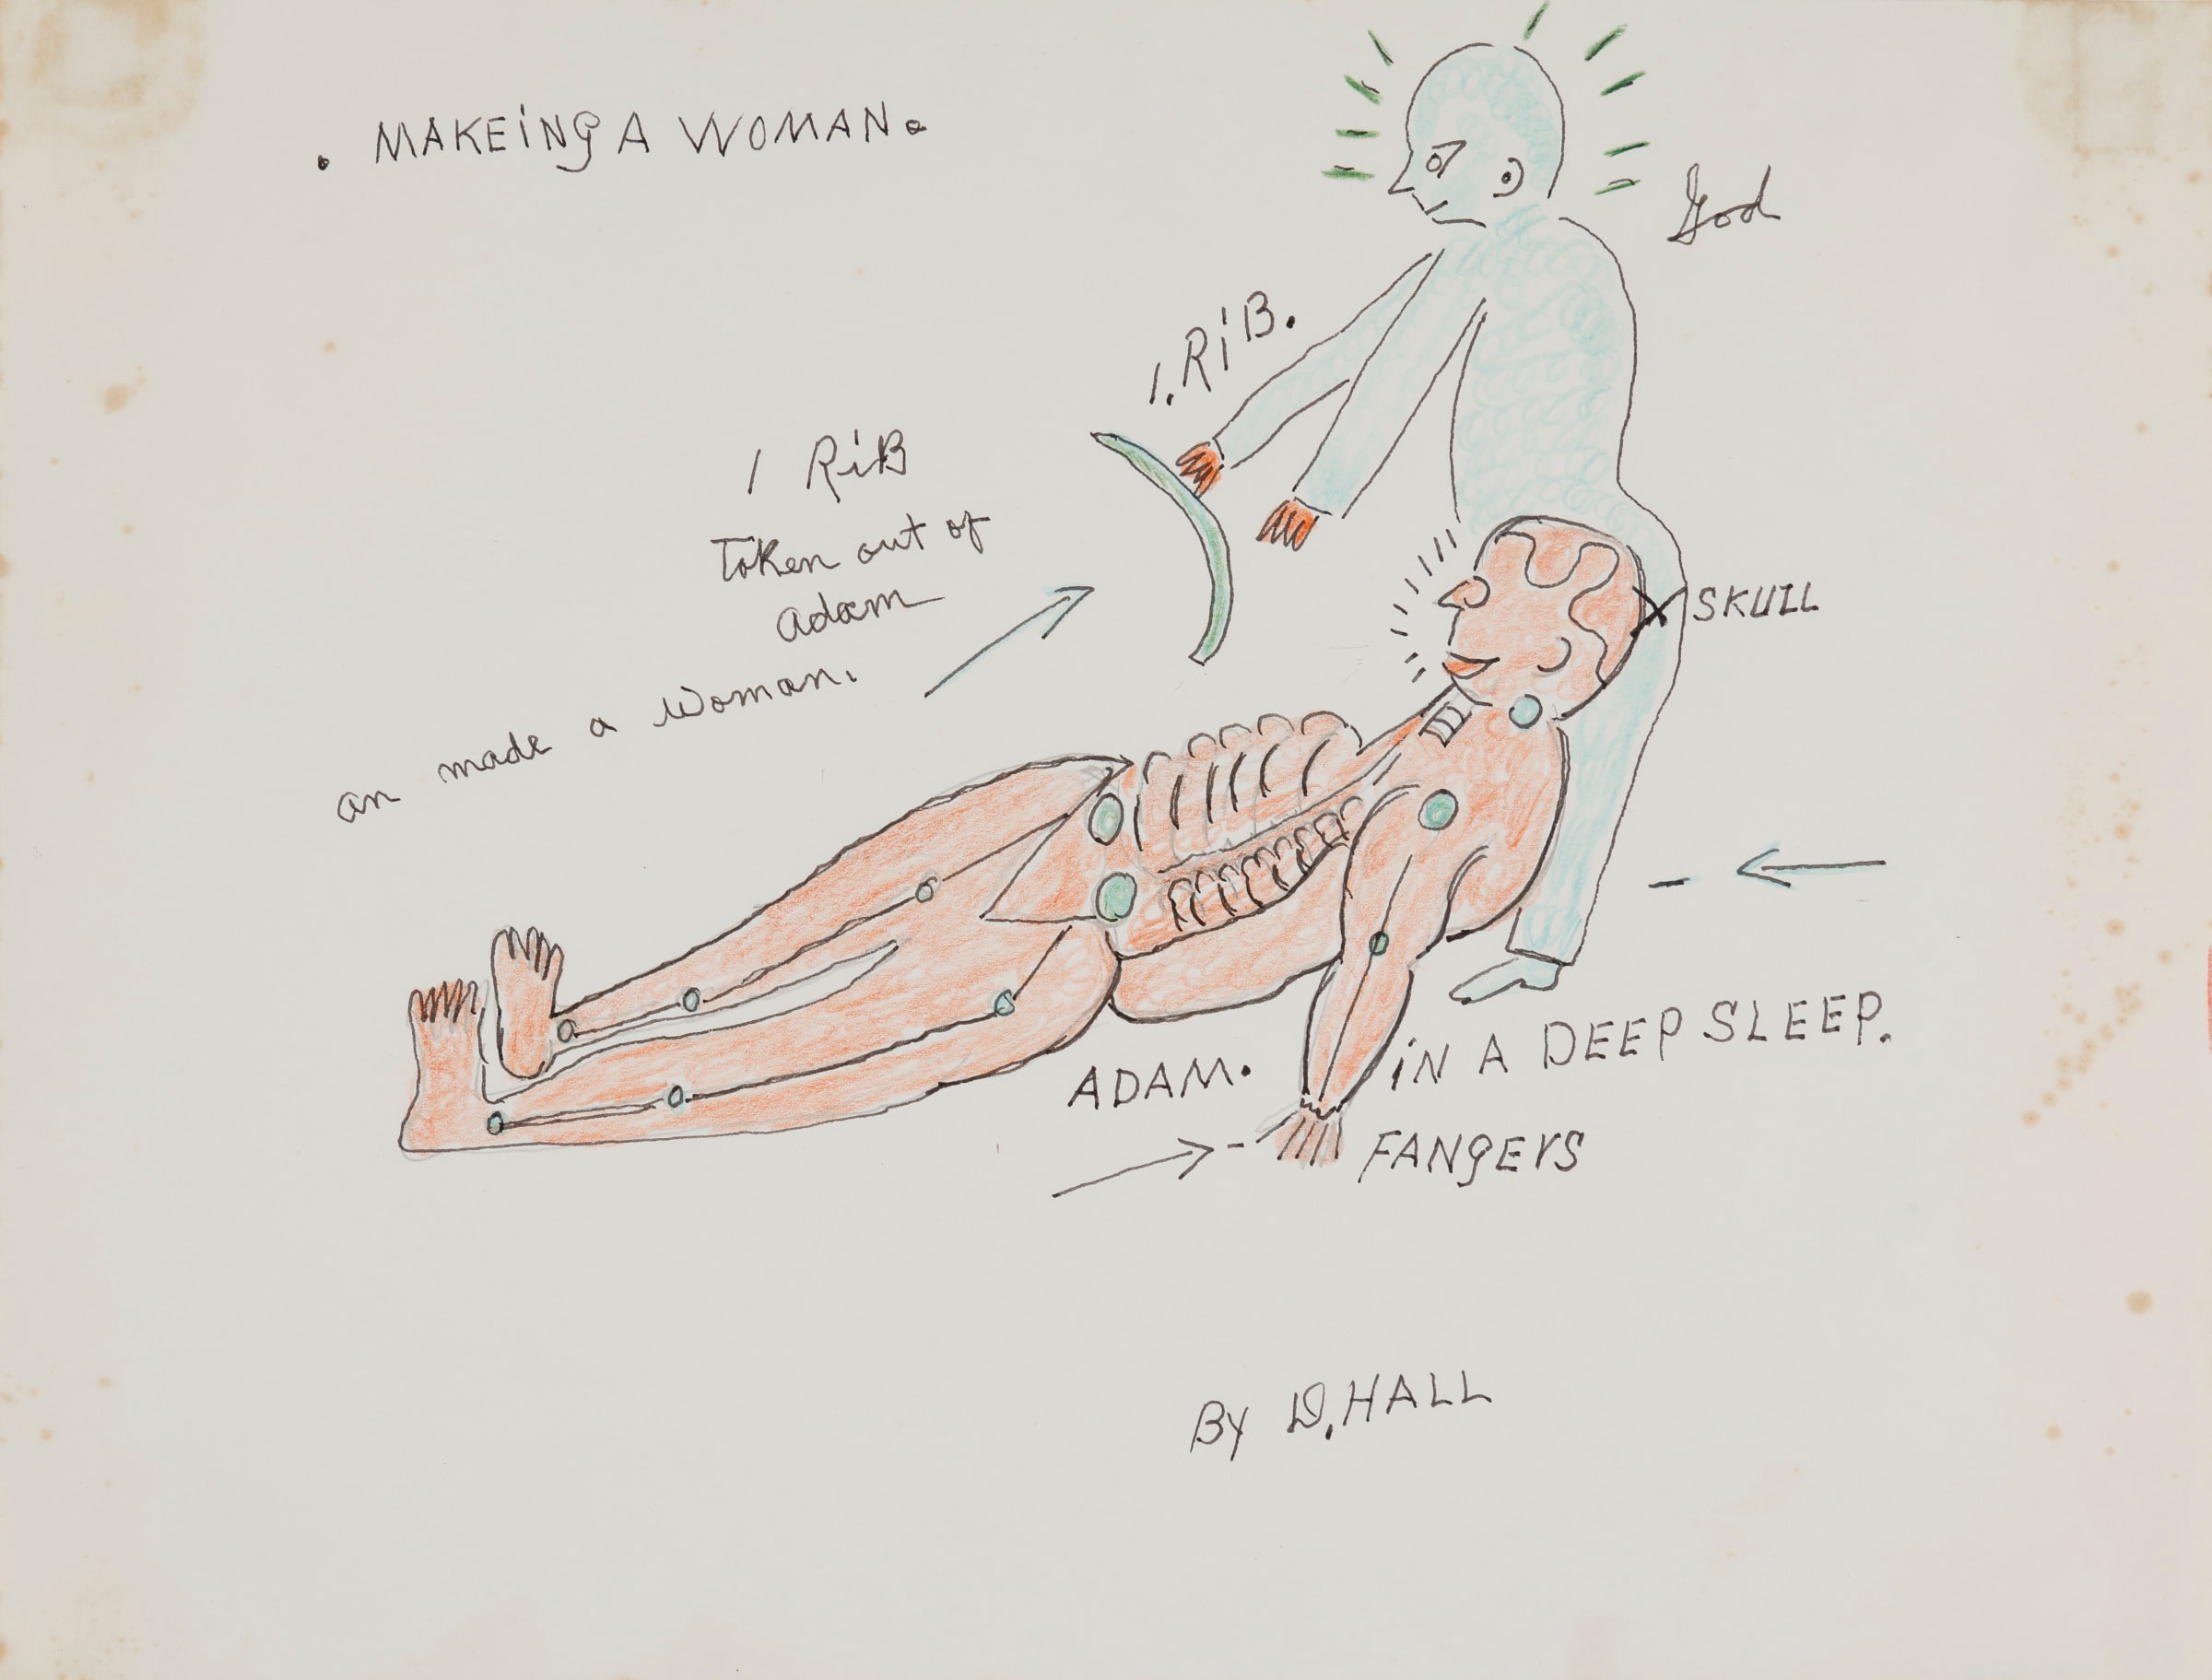 . MAKEiNg A WOMAN.
God
1. RiB.
1 RiB
Taken out of
adam
an made a woman.
SKULL
ADAM. iN A DEEP SLEEP.
FANgErS
By D. HALL